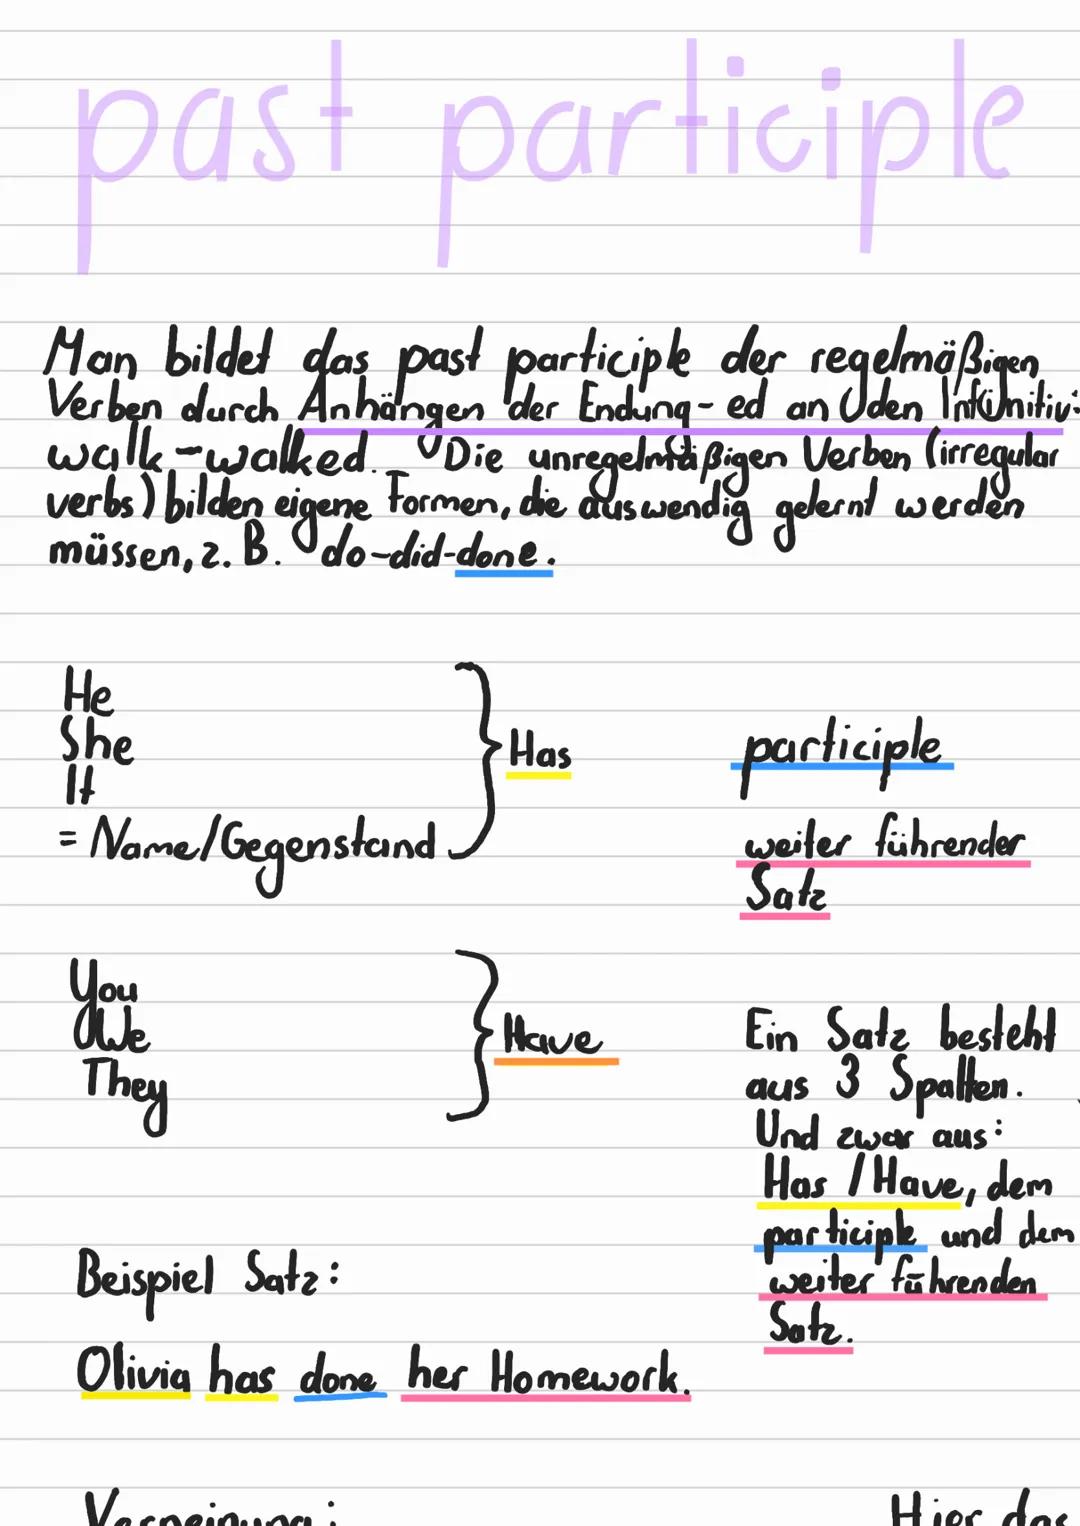 past participle
Man bildet das past participle der regelmäßigen
Verben durch Anhängen der Endung -ed an den Infinitiv:
walk - walked. Die unregelmäßigen Verben (irregular
verbs) bilden eigene Formen, die auswendig gelernt werden
müssen, z. B. do-did-done.
He
She
It
= Name/Gegenstand
Has
participle
weiter führender
Satz
You
We
They
Have
Ein Satz besteht
aus 3 Spalten.
Und zwar aus:
Has / Have, dem
participle und dem
weiter führenden
Satz.
Beispiel Satz:
Olivia has done her Homework.
Verneinung:
Hier das